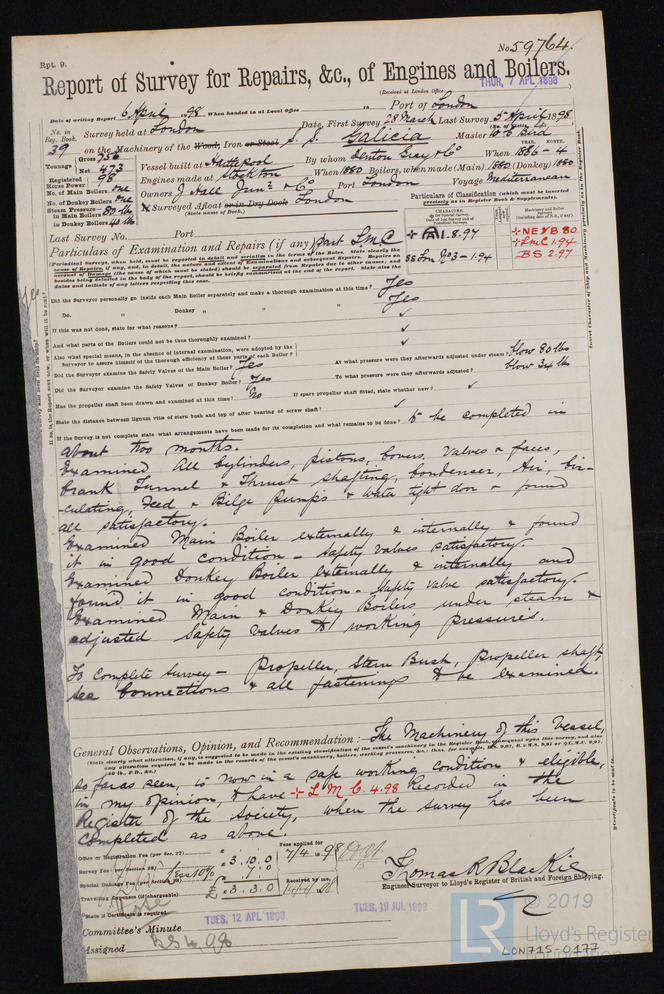 No. 59764.
Rpt. 9.
Report of Survey for Repairs, &c., of Engines and Boilers.
THUR, 7 APL 1898
(Received at London Office
Date of writing Report 6 April 1898 When handed in at Local Office 18 Port of London
No. in Reg. Book. Survey held at London Date, First Survey 28 March Last Survey 5 April 1898
39 on the Machinery of the Wood, Iron or Steel S. S. Galicia Master W. E. Bird
Tonnage Gross 756 Net 473 Vessel built at Hartlepool By whom Denton Gray & Co When 1886 - 4
Registered Horse Power 98 Engines made at Stockton When 1880 Boilers, when made (Main) 1880 (Donkey) 1880
No. of Main Boilers one Owners J Hall Junr & Co Port London Voyage Mediterranean
No. of Donkey Boilers one
Steam Pressure in Main Boilers 80 lbs If Surveyed Afloat or in Dry Dock London
in Donkey Boilers 40 lbs (State name of Dock.)
Particulars of Classification (which must be inserted precisely as in Register Book & Supplements).
Last Survey No. Port
+ A1 8.97
SS Lon No 3 - 1.94
+ NE & B 80
+ LMC 1.94
BS 2.97
Particulars of Examination and Repairs (if any) part LMC
Did the Surveyor personally go inside each Main Boiler separately and make a thorough examination at this time? Yes
Do. " Donkey " " " Yes
If this was not done, state for what reasons?
And what parts of the Boilers could not be thus thoroughly examined?
Also what special means, in the absence of internal examination, were adopted by the Surveyor to assure himself of the thorough efficiency of those parts of each Boiler?
Did the Surveyor examine the Safety Valves of the Main Boiler? Yes At what pressure were they afterwards adjusted under steam? blow 80 lbs
Did the Surveyor examine the Safety Valves of Donkey Boiler? Yes To what pressure were they afterwards adjusted? blow 34 lbs
Has the propeller shaft been drawn and examined at this time? No If spare propeller shaft fitted, state whether new?
State the distance between lignum vitæ of stern bush and top of after bearing of screw shaft?
If the Survey is not complete state what arrangements have been made for its completion and what remains to be done? to be completed in
about two months.
Examined all Cylinders, pistons, covers, valves & faces,
Crank Tunnel & Thrust shafting, Condenser, Air, Cir-
-culating, Feed & Bilge Pumps & water tight door & found
all satisfactory.
Examined Main Boiler externally & internally & found
it in good condition - Safety valves satisfactory.
Examined Donkey Boiler externally & internally and
found it in good condition - Safety valve satisfactory.
Examined Main & Donkey Boilers under steam &
adjusted Safety Valves to working pressures.
To complete Survey - Propeller, Stern Bush, Propeller shaft,
Sea Connections & all fastenings to be examined.
General Observations, Opinion, and Recommendation :— The Machinery of this Vessel,
so far as seen, is now in a safe working condition & eligible,
in my opinion, to have + L M C. 4.98 Recorded in the
Register of the Society, when the survey has been
completed as above.
Office or Registration Fee (per Sec. 27)
Survey Fee (per Section 28) 3.10.0
Special Damage Fee (per Section 28) less 10% 7.0
Travelling Expenses (if chargeable) £ 3.3.0
Fees applied for 7/4 1898
Received by me, 14/4 98
Thomas R Blackie
Engineer Surveyor to Lloyd's Register of British and Foreign Shipping.
State if Certificate is required
TUES, 12 APL 1898
TUES, 19 JUL 1898
Committee's Minute
Assigned BS 4.98
© 2019
LR
Lloyd's Register
Foundation
LON715-0177